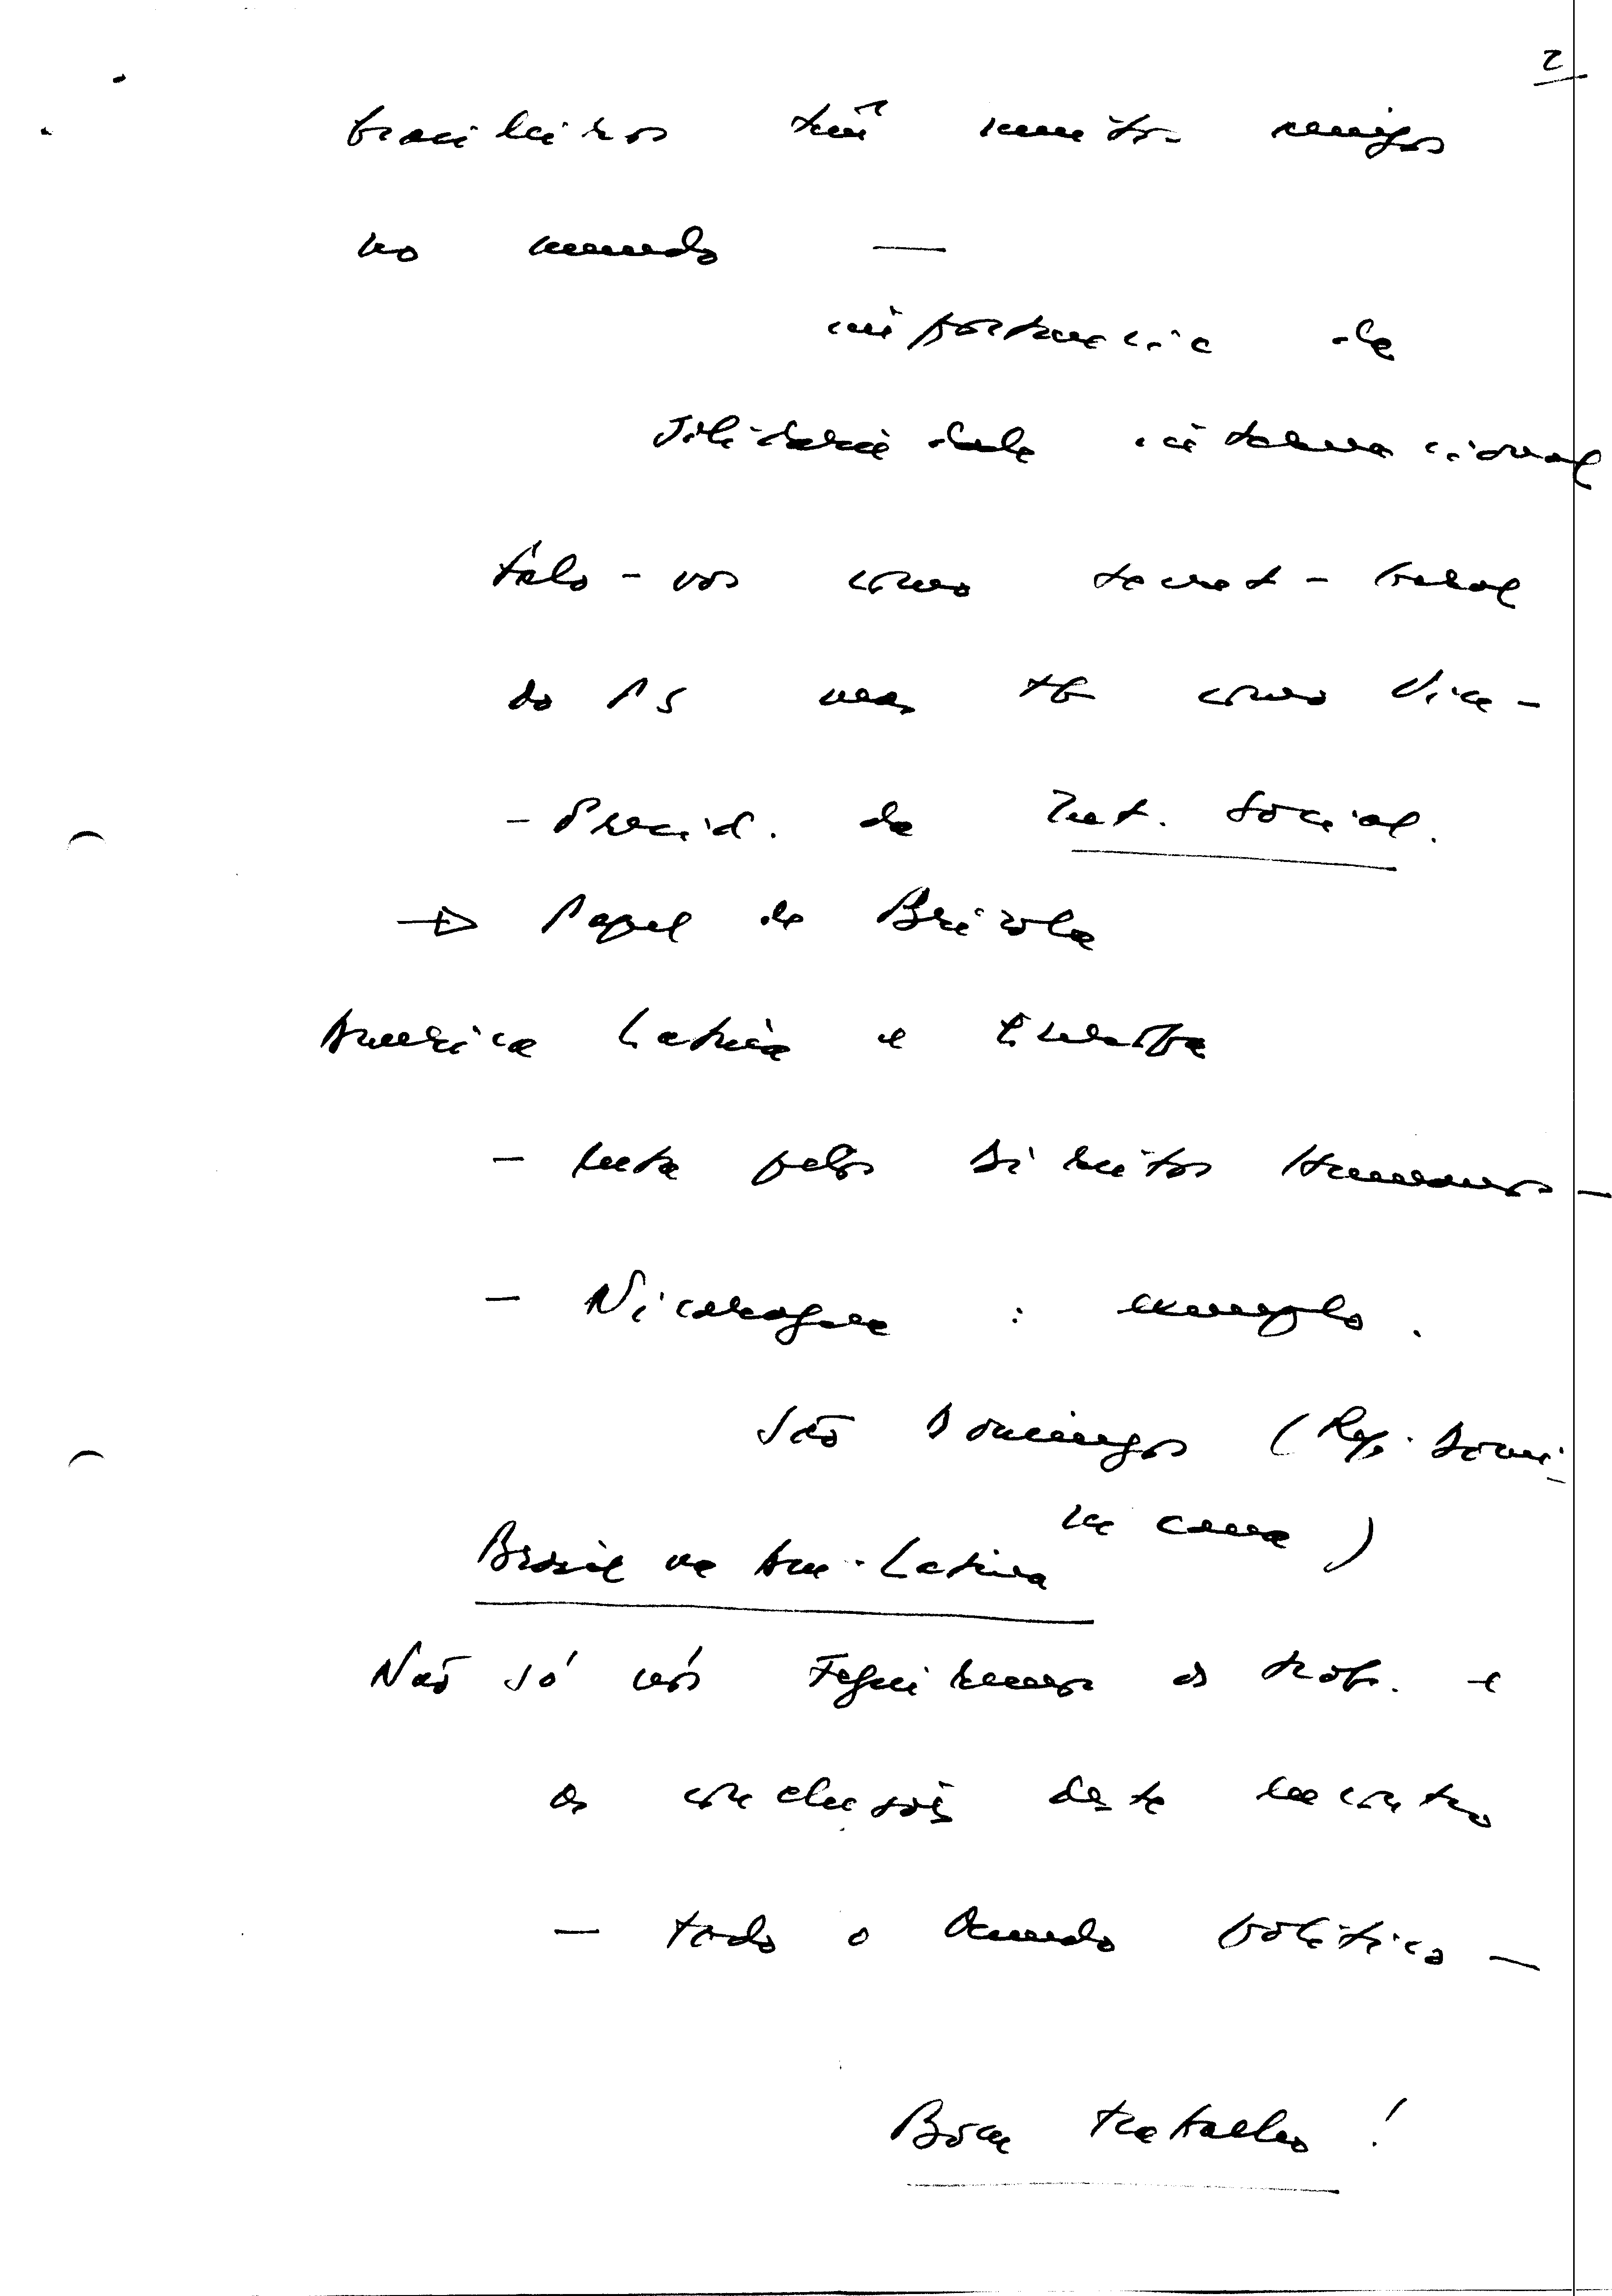 2
brasileiros têm muitos amigos
no mundo —
importancia da
Solidariedade internacional
Falo-vos como secret-Geral
do PS mas tb como Vice-
- Presid. da Int. Social.
→ Papel de Brizola
America Latina e Europa
- luta pelos Direitos Humanos -
- Nicaragua : exemplo.
São Domingos (Rep. Domi-
nicana)
Brasil na Am. Latina
Não só nós seguiremos os trab. e
as conclusões deste encontro
- todo o Mundo politico -
Bom trabalho !